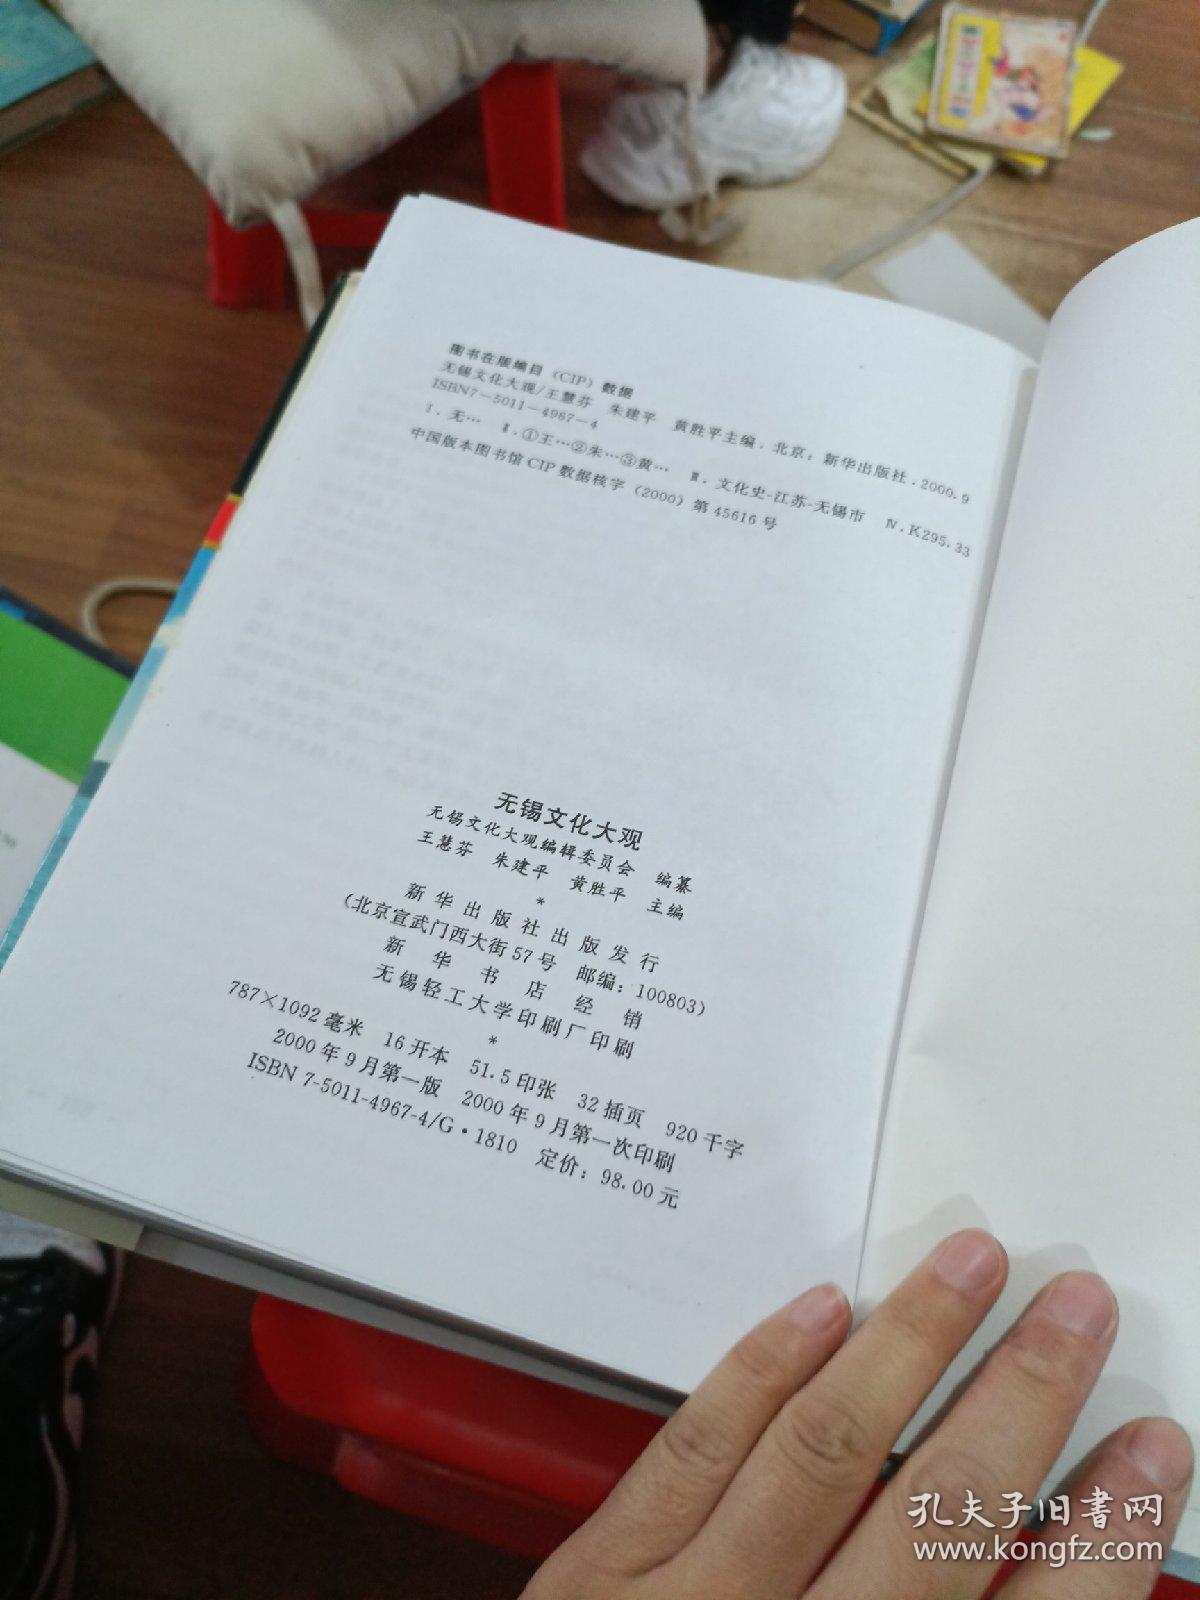 图书在版编目（CIP）数据
无锡文化大观/王慧芬　朱建平　黄胜平主编．北京：新华出版社．2000.9
ISBN7-5011-4967-4
Ⅰ．无…　Ⅱ．①王…②朱…③黄…　Ⅲ．文化史-江苏-无锡市　Ⅳ．K295.33
中国版本图书馆CIP数据核字（2000）第45616号
无锡文化大观
无锡文化大观编辑委员会　编纂
王慧芬　朱建平　黄胜平　主编
*
新华出版社出版发行
（北京宣武门西大街57号　邮编：100803）
新华书店经销
无锡轻工大学印刷厂印刷
*
787×1092毫米　16开本　51.5印张　32插页　920千字
2000年9月第一版　2000年9月第一次印刷
ISBN 7-5011-4967-4/G·1810　定价：98.00元
孔夫子旧书网
www.kongfz.com